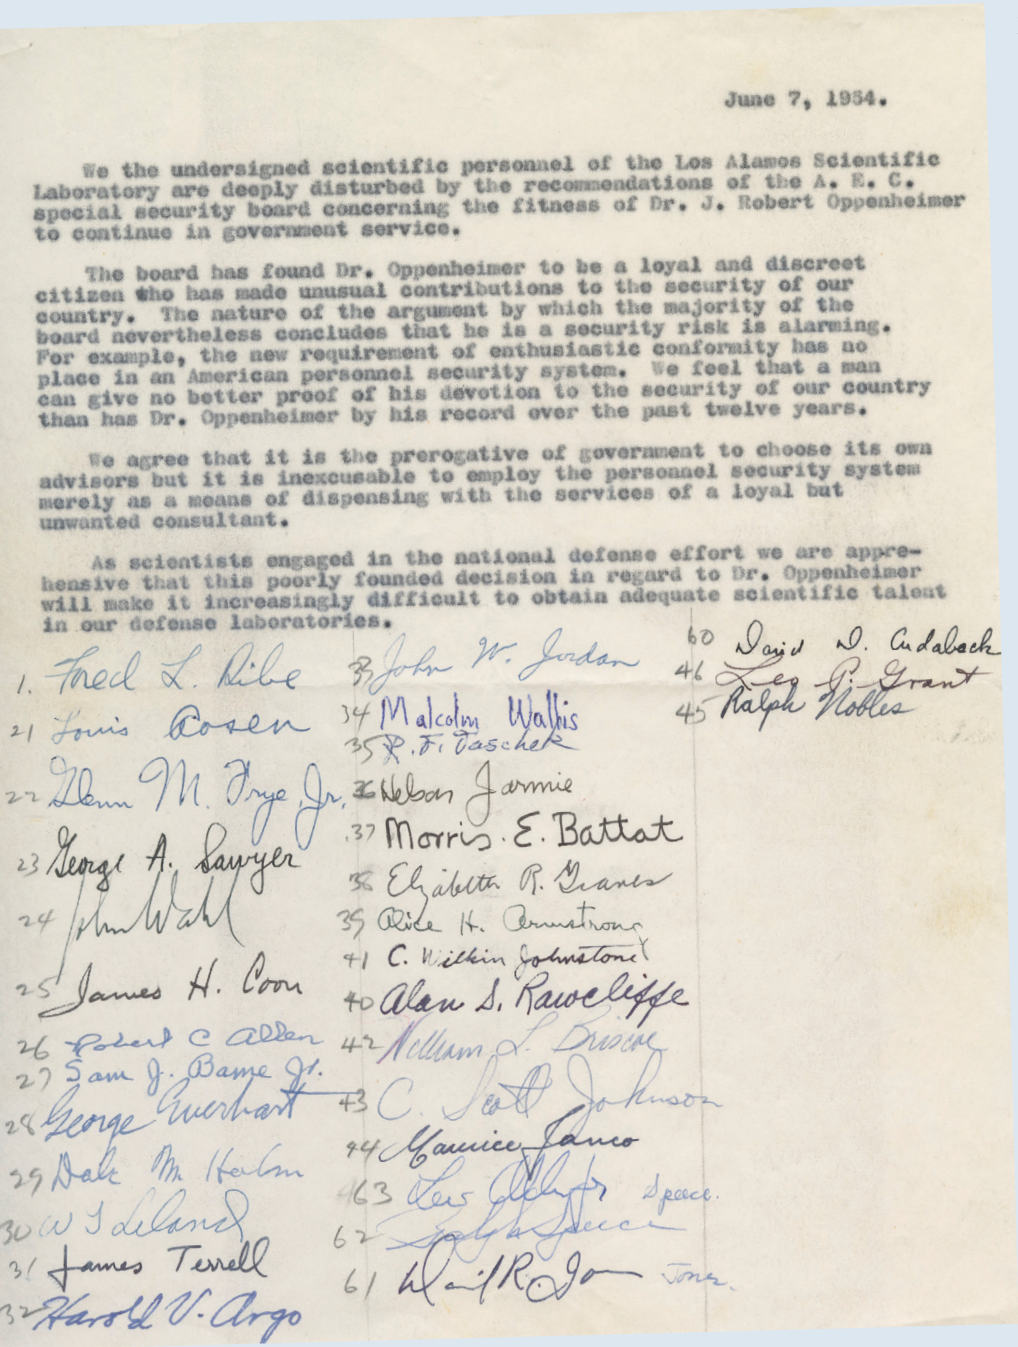 June 7, 1954.
We the undersigned scientific personnel of the Los Alamos Scientific
Laboratory are deeply disturbed by the recommendations of the A. E. C.
special security board concerning the fitness of Dr. J. Robert Oppenheimer
to continue in government service.
The board has found Dr. Oppenheimer to be a loyal and discreet
citizen who has made unusual contributions to the security of our
country. The nature of the argument by which the majority of the
board nevertheless concludes that he is a security risk is alarming.
For example, the new requirement of enthusiastic conformity has no
place in an American personnel security system. We feel that a man
can give no better proof of his devotion to the security of our country
than has Dr. Oppenheimer by his record over the past twelve years.
We agree that it is the prerogative of government to choose its own
advisors but it is inexcusable to employ the personnel security system
merely as a means of dispensing with the services of a loyal but
unwanted consultant.
As scientists engaged in the national defense effort we are appre-
hensive that this poorly founded decision in regard to Dr. Oppenheimer
will make it increasingly difficult to obtain adequate scientific talent
in our defense laboratories.
1. Fred L. Ribe
21 Louis Rosen
22 Glenn M. Frye, Jr.
23 George A. Sawyer
24 John Wahl
25 James H. Coon
26 Robert C Allen
27 Sam J. Bame Jr.
28 George Everhart
29 Dale M. Holm
30 W T Leland
31 James Terrell
32 Harold V. Argo
33 John W. Jordan
34 Malcolm Wallis
35 R. F. Taschek
36 Nelson Jarmie
37 Morris E. Battat
38 Elizabeth R. Graves
39 Alice H. Armstrong
41 C. Wilkin Johnstone
40 Alan S. Rawcliffe
42 William L. Briscoe
43 C. Scott Johnson
44 Maurice
63
62 Spence
Spence.
61 David R.
Jones.
60 David D. Cudaback
46 Leo P. Grant
45 Ralph Nobles